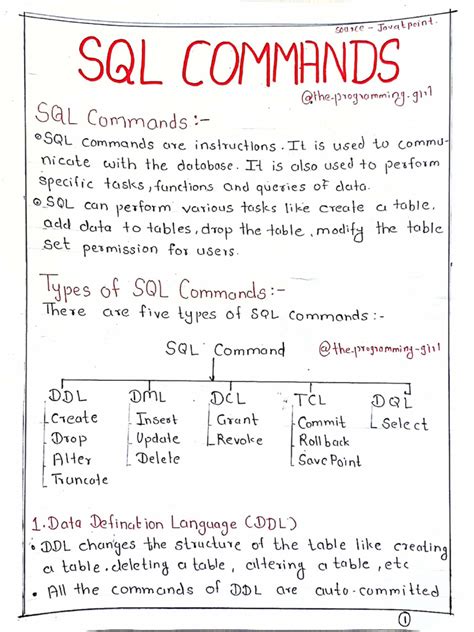 source - Javatpoint.
SQL COMMANDS
@the.programming-girl
SQL Commands :-
SQL commands are instructions. It is used to commu-
nicate with the database. It is also used to perform
specific tasks, functions and queries of data.
SQL can perform various tasks like create a table,
add data to tables, drop the table, modify the table
set permission for users.
Types of SQL Commands :-
There are five types of SQL commands :-
SQL Command @the.programming-girl
DDL DML DCL TCL DQL
Create Insert Grant Commit Select
Drop Update Revoke Rollback
Alter Delete SavePoint
Truncate
1. Data Defination Language (DDL)
• DDL changes the structure of the table like creating
a table. deleting a table, altering a table, etc
• All the commands of DDL are auto-committed
1